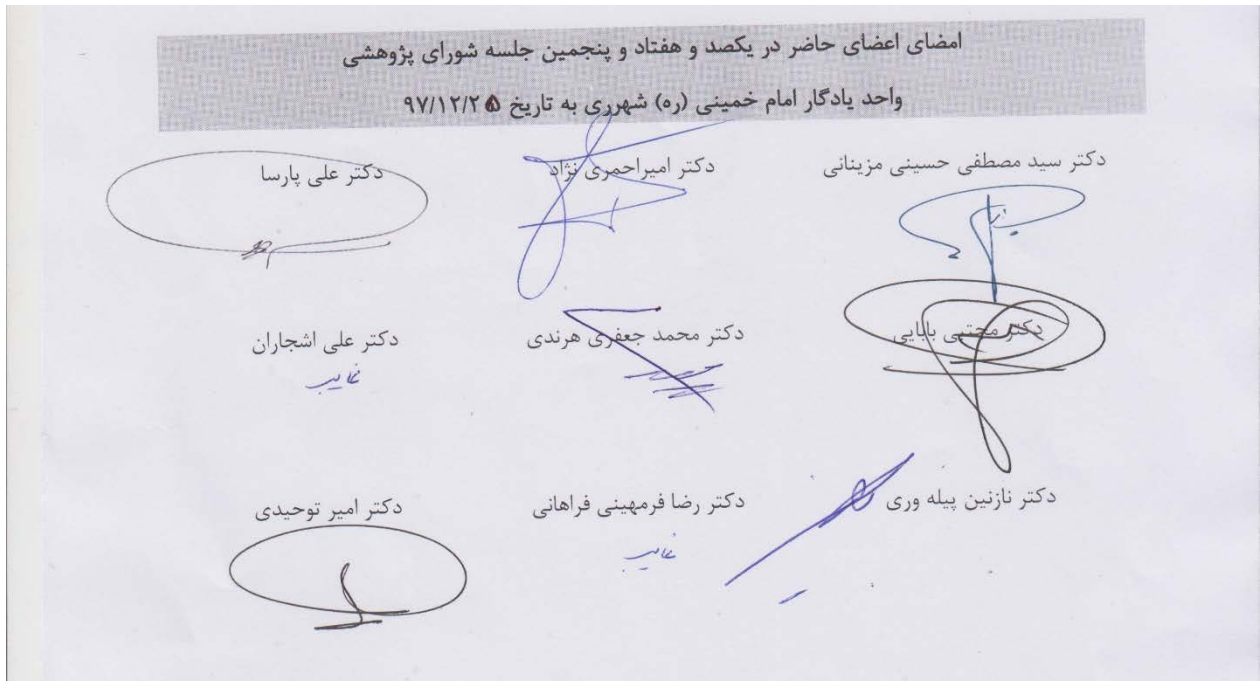 امضای اعضای حاضر در یکصد و هفتاد و پنجمین جلسه شورای پژوهشی
واحد یادگار امام خمینی (ره) شهرری به تاریخ ۹۷/۱۲/۲۵
دکتر سید مصطفی حسینی مزینانی دکتر امیراحمری نژاد دکتر علی پارسا
دکتر مجتبی بابایی دکتر محمد جعفری هرندی دکتر علی اشجاران
غایب
دکتر نازنین پیله وری دکتر رضا فرمهینی فراهانی دکتر امیر توحیدی
غایب